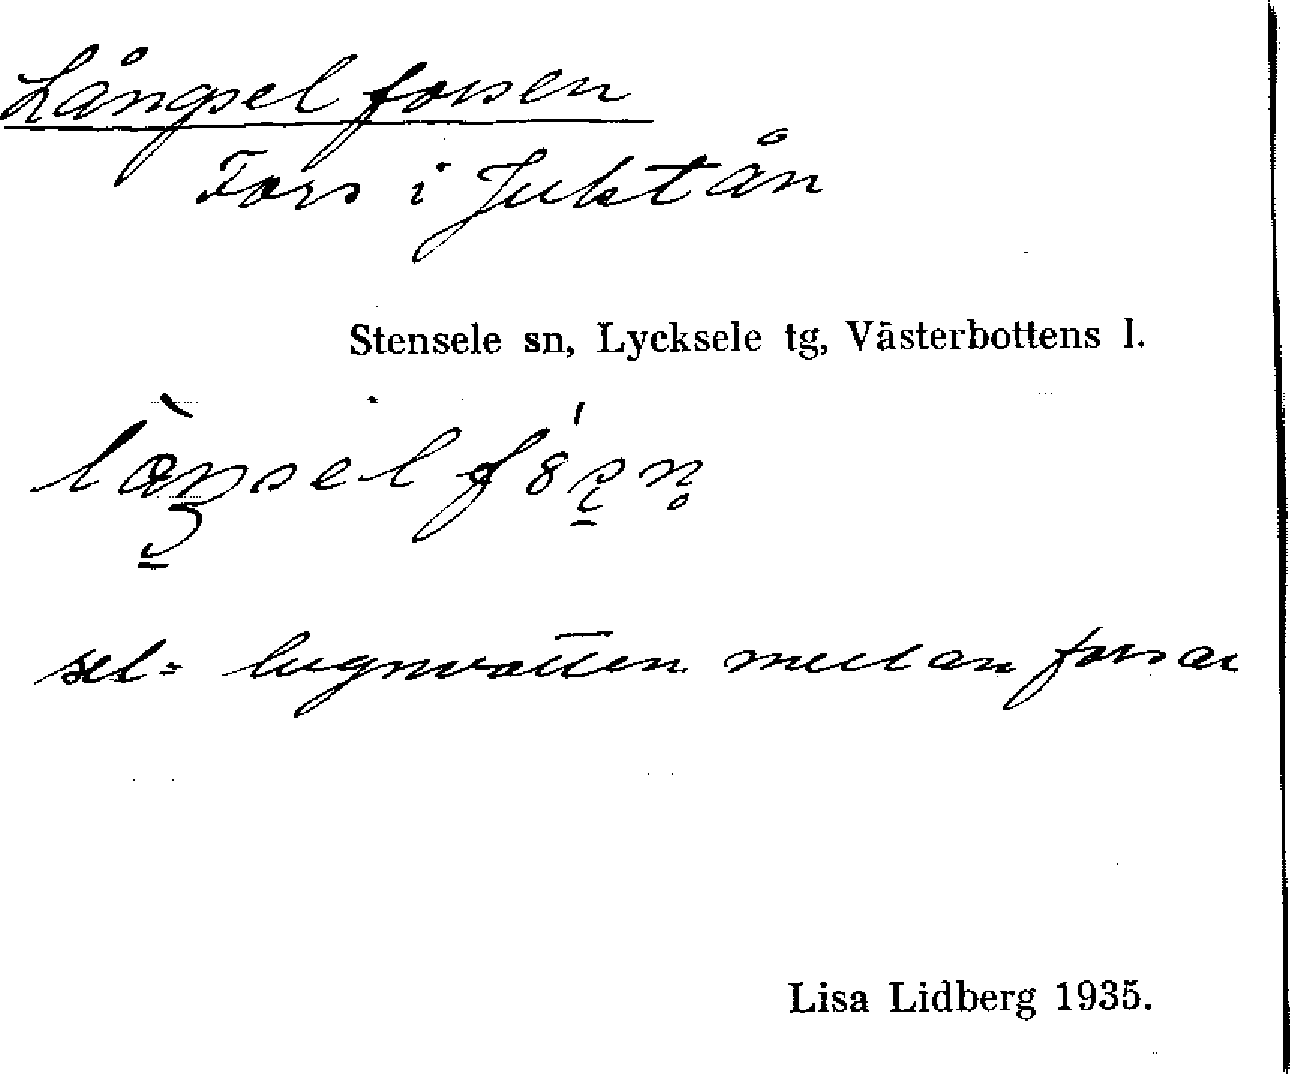 Långselforsen
Fors i Juktån
Stensele sn, Lycksele tg, Västerbottens l.
sel = lugnvatten mellan forsar
Lisa Lidberg 1935.